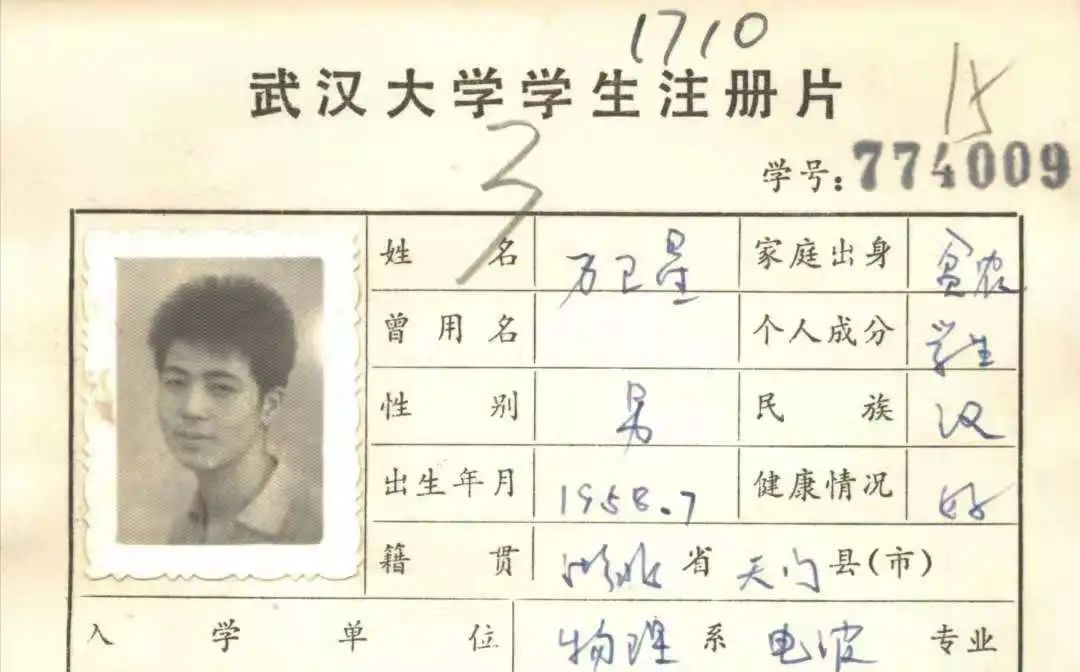 1710
武汉大学学生注册片
15
学号:774009
3
姓名 万卫星 家庭出身 贫农
曾用名 个人成分 学生
性别 男 民族 汉
出生年月 1958.7 健康情况 好
籍贯 湖北省天门县(市)
入学单位 物理系电波专业